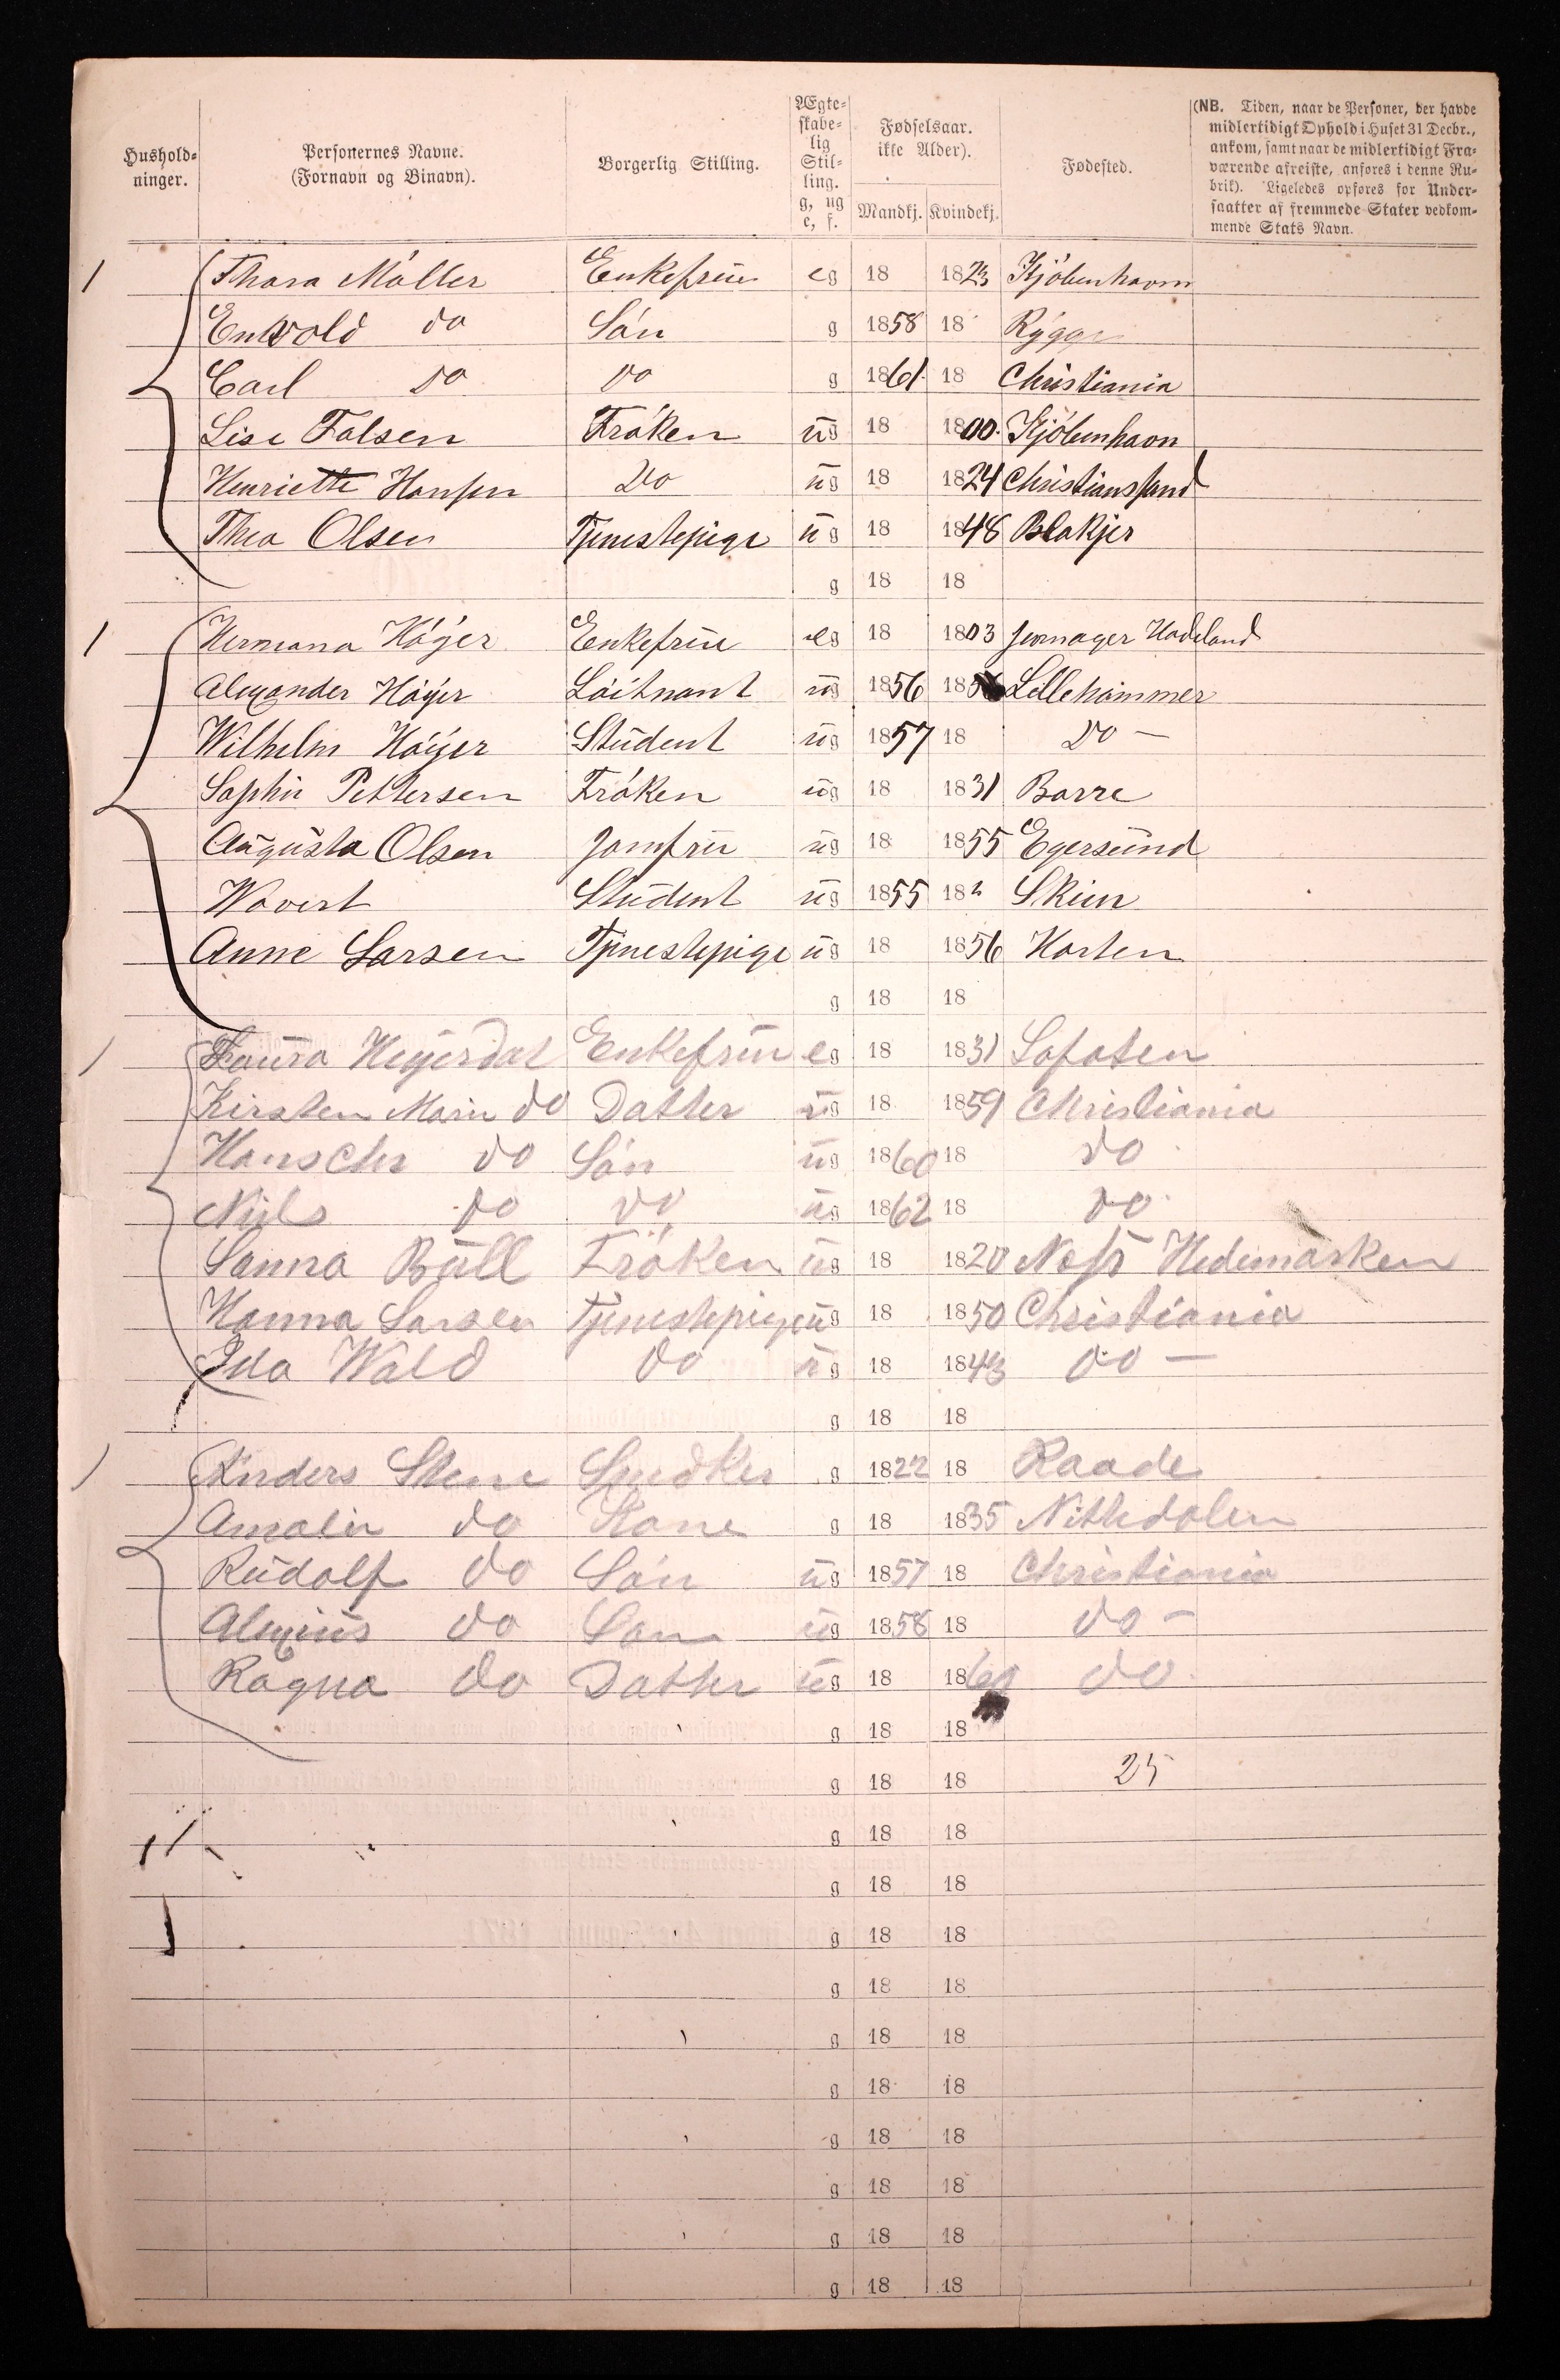 Hushold-
ninger.
Personernes Navne.
(Fornavn og Binavn).
Borgerlig Stilling.
Ægte-
skabe-
lig
Stil-
ling.
g, ug
e, f.
Fødselsaar.
ikke Alder).
Mandkj. Kvindekj.
Fødested.
(NB. Tiden, naar de Personer, der havde
midlertidigt Ophold i Huset 31 Decbr.,
ankom, samt naar de midlertidigt Fra-
værende afreiste, anføres i denne Ru-
brik). Ligeledes opføres for Under-
saatter af fremmede Stater vedkom-
mende Stats Navn.
1 Thora Möller Enkefrue eg 18 1823 Kjöbenhavn
do Sön g 1858 18 Rygge
Carl do do g 1861 18 Christiania
Lise Falsen Fröken ug 18 1800 Kjöbenhavn
Henriette Hansen Do ug 18 1824 Christianssand
Thea Olsen Tjenestepige ug 18 1848 Blakjer
g 18 18
1 Hermana Höyer Enkefrue eg 18 1803 Jevnager Hadeland
Alexander Höyer Löitnant ug 1856 18 Lillehammer
Wilhelm Höyer Student ug 1857 18 Do —
Sophie Pettersen Fröken ug 18 1831 Borre
Augusta Olsen Jomfru ug 18 1855 Egersund
Student ug 1855 18 Skien
Anne Larsen Tjenestepige ug 18 1856 Horten
g 18 18
1 Laura Heyerdal Enkefrue eg 18 1831 Lofoten
Kirsten Marie do Datter ug 18 1859 Christiania
Hans Chr do Sön ug 1860 18 do
Niels do do ug 1862 18 do
Sanna Büll Fröken ug 18 1820 Næss Hedemarken
Hanna Larsen Tjenestepige ug 18 1850 Christiania
Ida Wald do ug 18 1843 do —
g 18 18
1 Anders Stene Snedker g 1822 18 Raade
Amalie do Kone g 18 1835 Nittedalen
Rudolf do Sön ug 1857 18 Christiania
Alexius do Sön ug 1858 18 do —
Ragna do Datter ug 18 1860 do
g 18 18
g 18 18 25
g 18 18
g 18 18
g 18 18
g 18 18
g 18 18
g 18 18
g 18 18
g 18 18
g 18 18
g 18 18